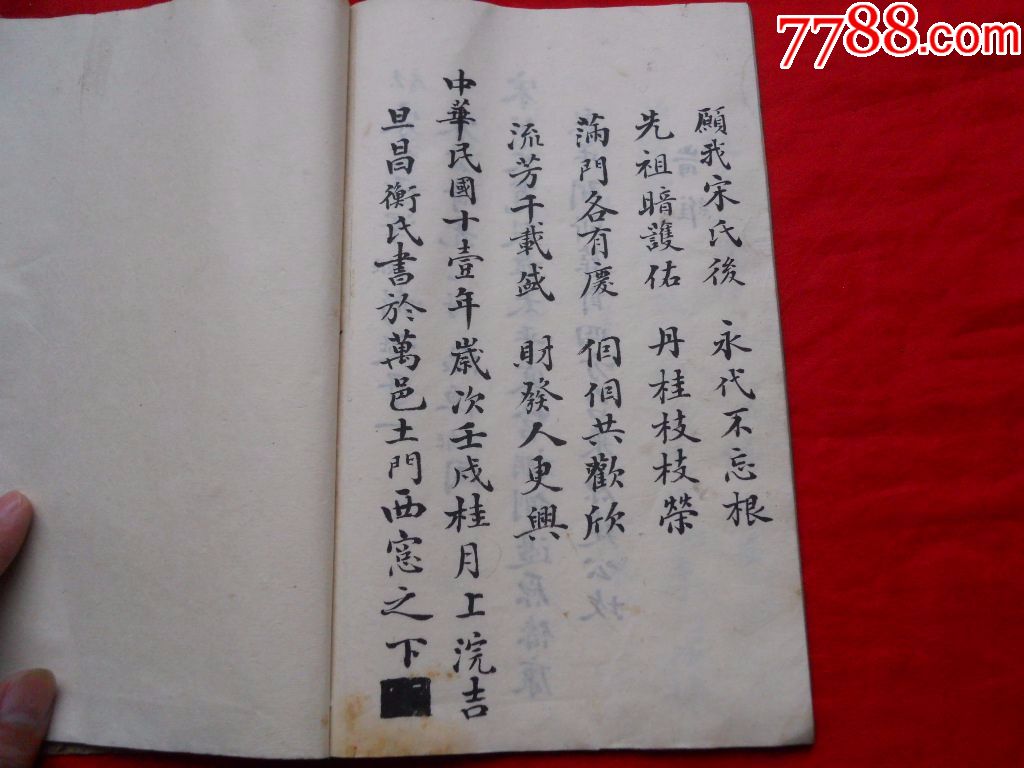 7788.com
願我宋氏後 永代不忘根
先祖暗護佑 丹桂枝枝榮
滿門各有慶 個個共歡欣
流芳千載盛 財發人更興
中華民國十壹年歲次壬戍桂月上浣吉
旦昌衡氏書於萬邑土門西窓之下